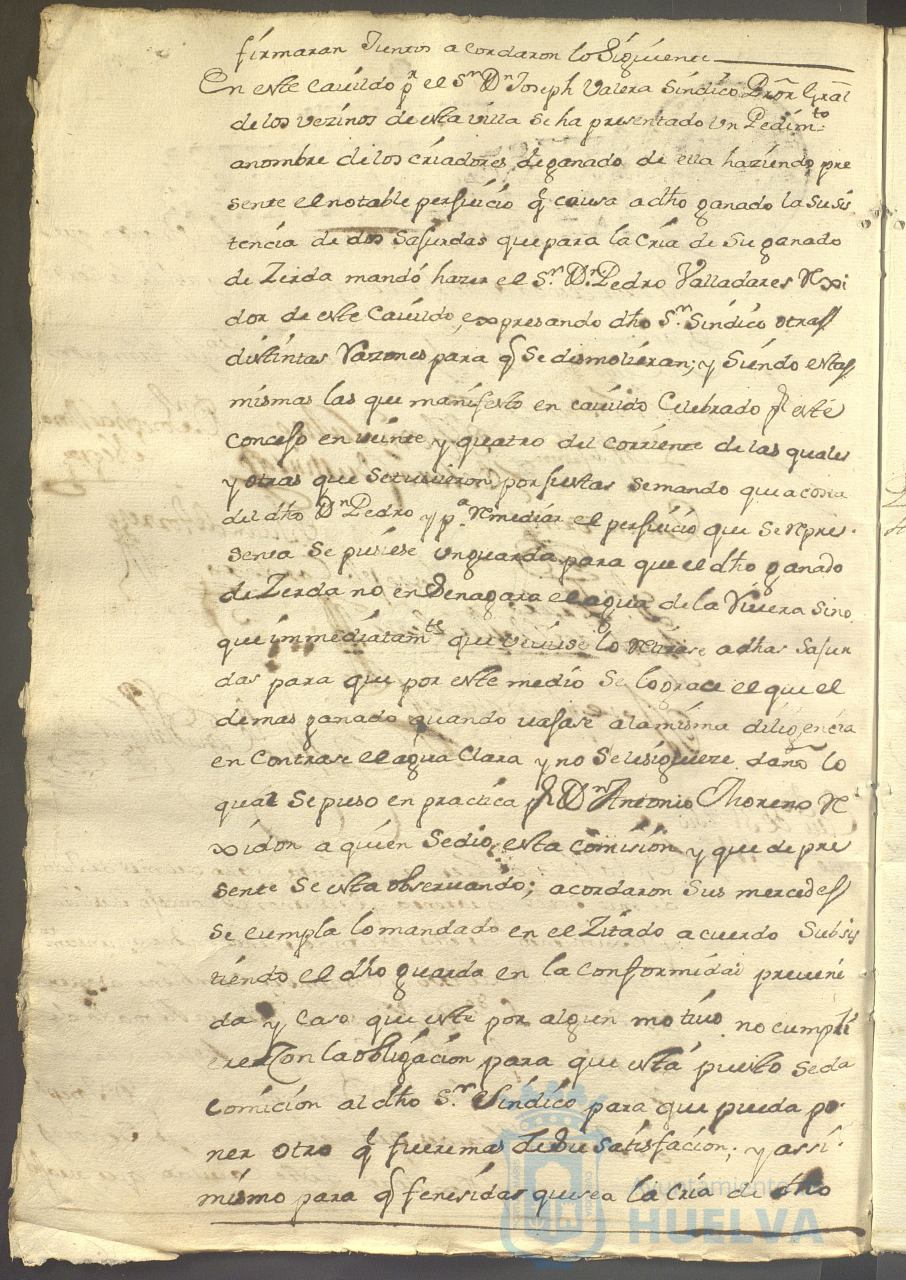 firmaran Juntos acordaron lo Siguiente
En este Cavildo pr el Sr Dn Joseph Valera Sindico Pror Gral
de los vezinos de esta villa Se ha presentado Un Pedimto
anombre de los criadores de ganado de ella haziendo pre
sente el notable perjuicio q causa a dho ganado la Susis
tencia de dos Safurdas que para la Cria de Su ganado
de Zerda mandó hazer el Sr. Dn. Pedro Valladares Rexi
dor de este Cavildo, expresando dho Sr. Sindico otras
distintas Razones para q Se demolieran; y Siendo estas
mismas las que manifesto en cavildo Celebrado pr este
Consejo en veinte y quatro del Corriente de las quales
y otras que Setuvieron por justas Semando que acosta
del dho Dn Pedro y pa Remediar el perjuicio que Se Repre
senta Se pusiese un guarda para que el dho ganado
de Zerda no enZenagara el agua de la Rivera Sino
que immediatamte que veviese lo Retirase adhas Safur
das para que por este medio Se lograce el que el
demas ganado quando vajase alamisma diligencia
en Contrase el agua Clara y no Selesiguiere daño lo
qual Sepuso en practica pr Dn Antonio Moreno Re
xidor a quien Sedio esta Comision y que de pre
sente Se esta observando; acordaron Sus mercedes
Se cumpla lo mandado en el Zitado acuerdo Subsis
tiendo el dho guarda en la Conformidad preveni
da y Caso que este por algun motivo no cumpli
ere Con la obligacion para que está puesto Seda
Comicion al dho Sr. Sindico para que pueda po
ner otro q fuere mas de Su Satisfacion; y assi
mismo para q fenesidas quesea la Cria de dho
Ayuntamiento de
HUELVA